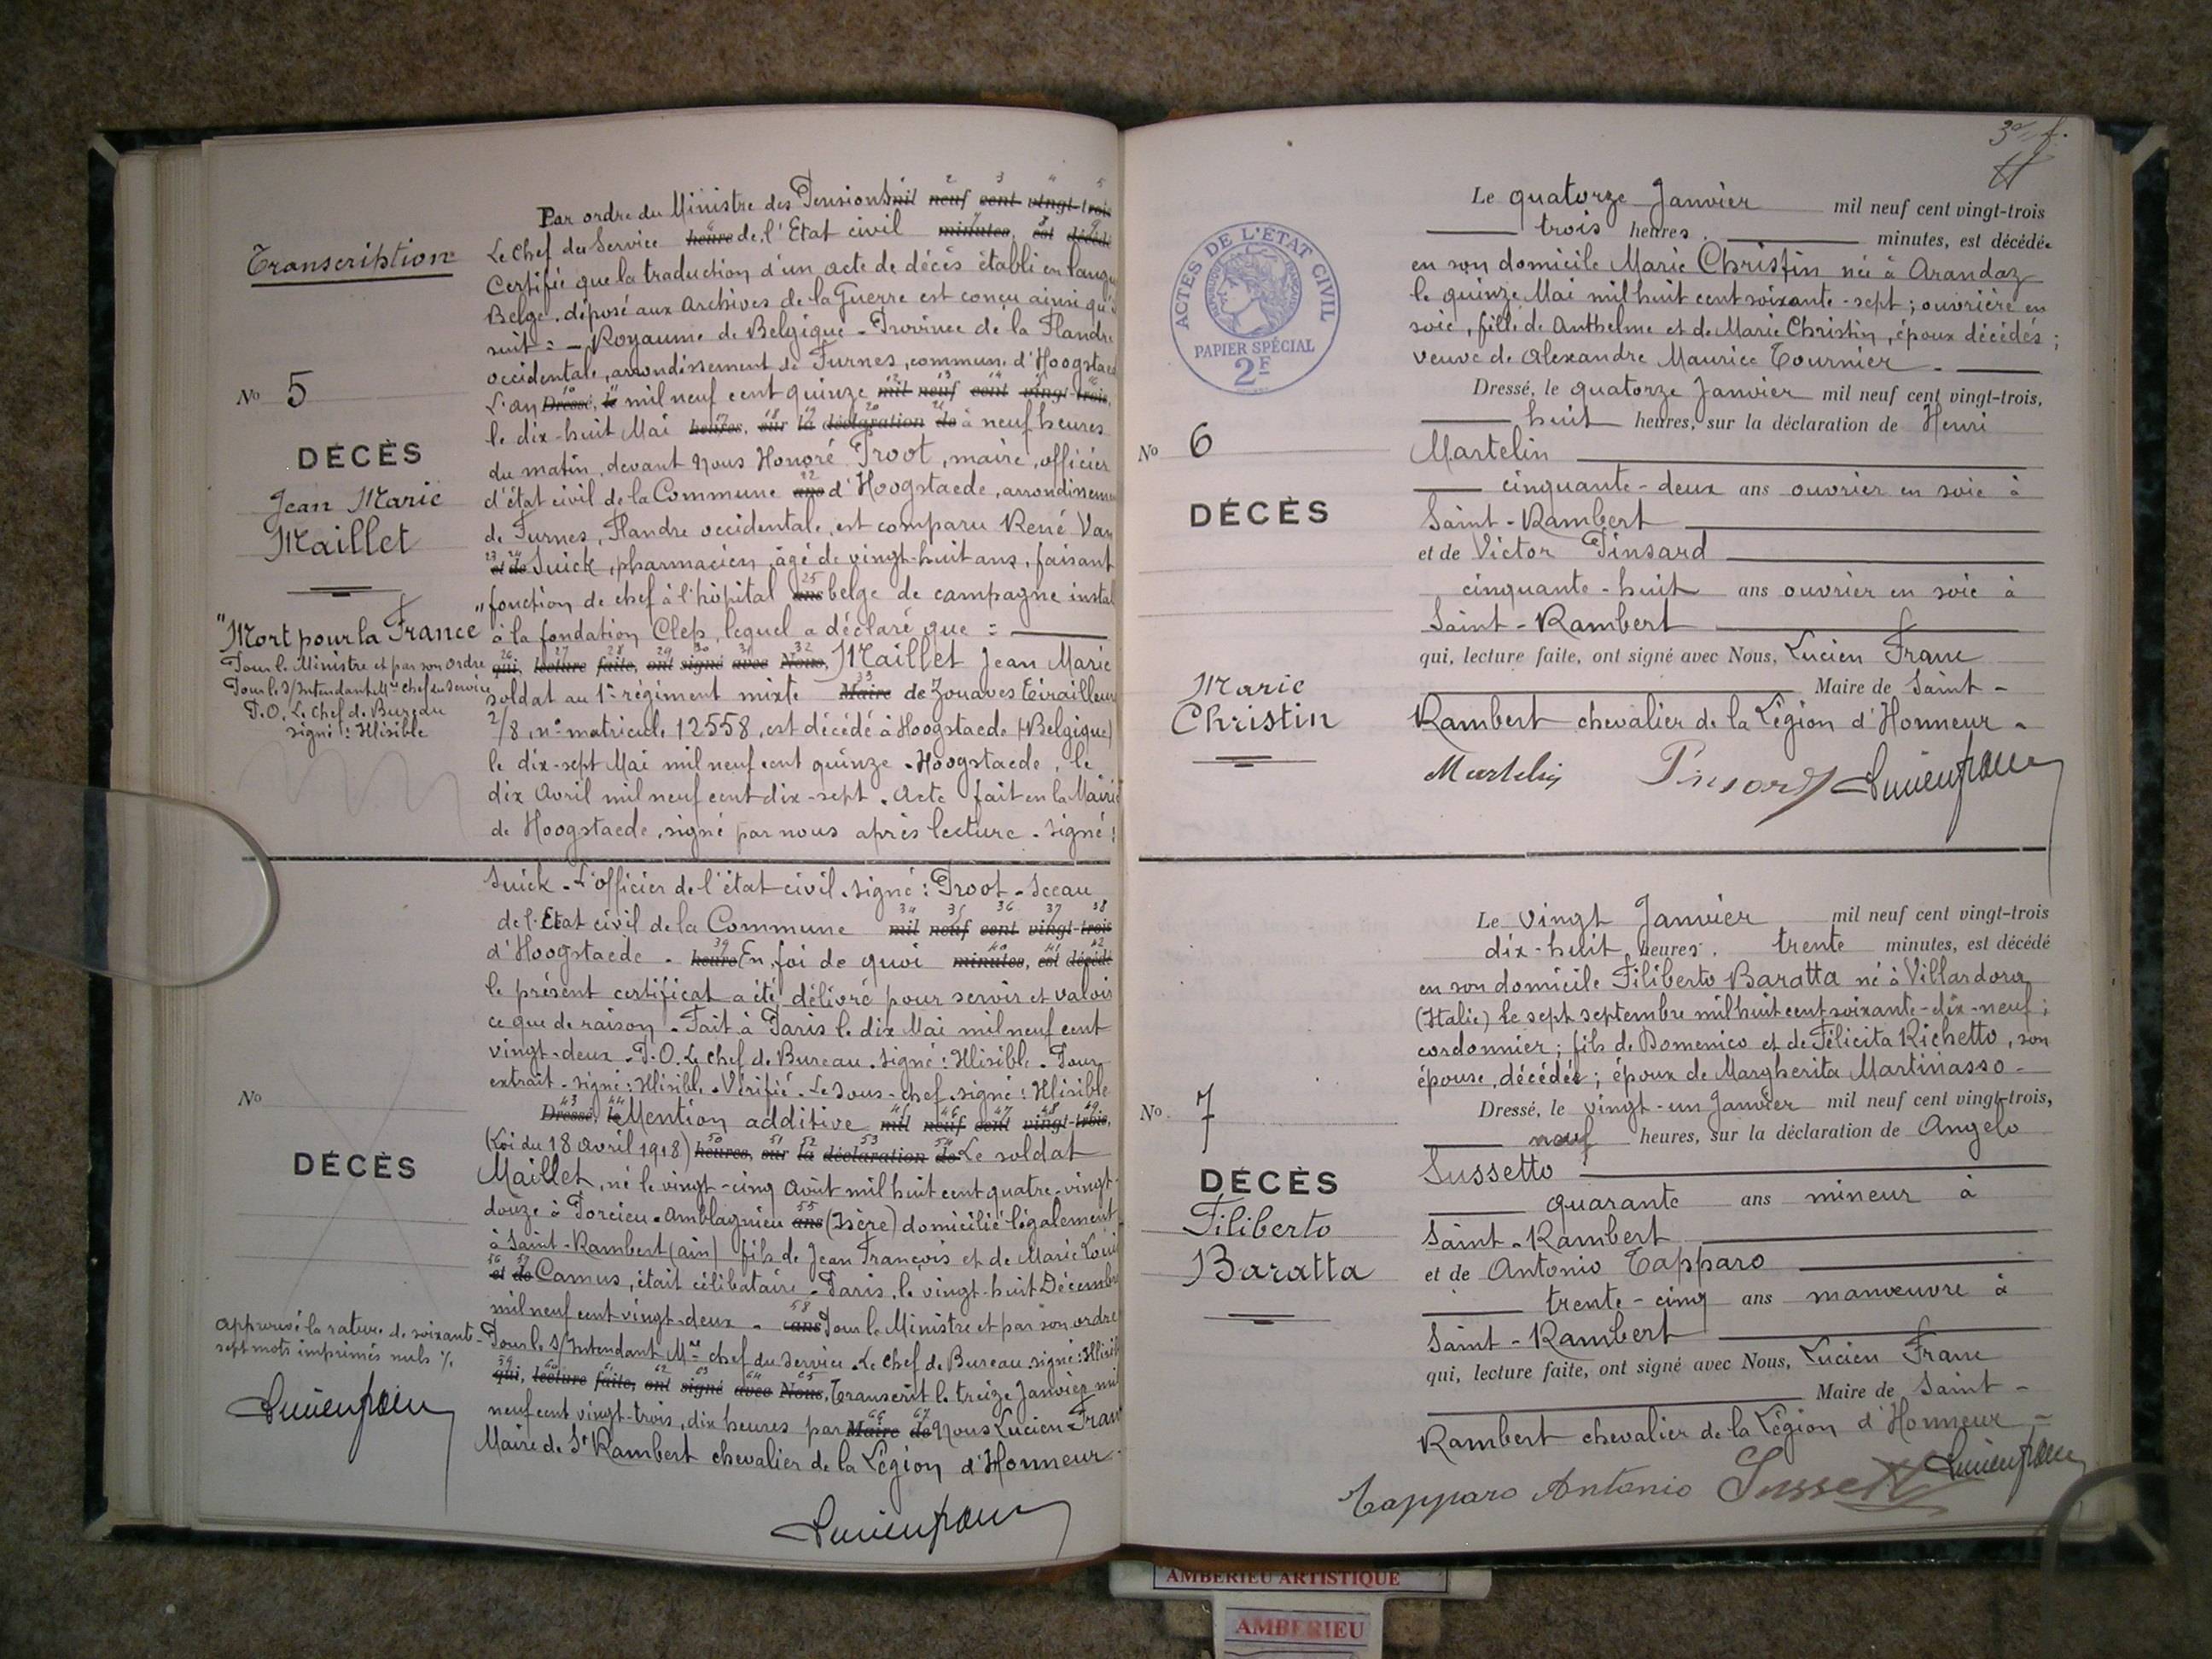 Transcription
Nº 5
DÉCÈS
Jean Marie
Maillet
"Mort pour la France"
Pour le Ministre et par son ordre
Pour le S/Intendant Mre chef du Service
P.O. Le Chef de Bureau
signé : Illisible
Par ordre du Ministre des Pensions mil neuf cent vingt-trois
Le Chef du Service heure de l'Etat civil minutes, est décédé
Certifie que la traduction d'un acte de décès établi en langue
Belge, déposé aux Archives de la Guerre est conçu ainsi qu'il
suit : - Royaume de Belgique - Province de la Flandre
occidentale, arrondissement de Furnes, commune d'Hoogstaede
L'an Dressé, le mil neuf cent quinze mil neuf cent vingt-trois,
le dix-huit Mai heures, sur la déclaration de à neuf heures
du matin, devant Nous Honoré Proot, maire, officier
d'état civil de la Commune ans d'Hoogstaede, arrondissement
de Furnes, Flandre occidentale, est comparu René Van
et de Suick, pharmacien, âgé de vingt-huit ans, faisant
fonction de chef à l'hôpital ans belge de campagne instal
à la fondation Clep, lequel a déclaré que : -
qui, lecture faite, ont signé avec Nous, Maillet Jean Marie
soldat au 1er régiment mixte Maire de Zouaves Tirailleurs
2/8, nº matricule 12558, est décédé à Hoogstaede (Belgique)
le dix-sept Mai mil neuf cent quinze. Hoogstaede, le
dix Avril mil neuf cent dix-sept. Acte fait en la Mairie
de Hoogstaede, signé par nous après lecture. Signé :
Suick - L'officier de l'état civil. signé : Proot - Sceau
de l'Etat civil de la Commune mil neuf cent vingt-trois
d'Hoogstaede. heure En foi de quoi minutes, est décédé
le présent certificat a été délivré pour servir et valoir
ce que de raison. Fait à Paris le dix Mai mil neuf cent
vingt-deux. P.O. Le Chef de Bureau. signé : Illisible. Pour
extrait. signé : Illisible. Vérifié. Le Sous-chef. signé : Illisible
Dressé, le Mention additive mil neuf cent vingt-trois,
(Loi du 18 avril 1918) heures, sur la déclaration de Le soldat
Maillet, né le vingt-cinq Août mil huit cent quatre-vingt-
douze à Porcieu-Amblagnieu ans (Isère) domicilié légalement
à Saint-Rambert (Ain) fils de Jean François et de Marie Louise
et de Camus, était célibataire. Paris, le vingt-huit Décembre
mil neuf cent vingt-deux. ans Pour le Ministre et par son ordre
Pour le S/Intendant Mre chef du service. Le Chef de Bureau signé : Illisible
qui, lecture faite, ont signé avec Nous, Transcrit le treize Janvier mil
neuf cent vingt-trois, dix heures par Maire de Nous Lucien Franc
Maire de St Rambert chevalier de la Légion d'Honneur.
Nº
DÉCÈS
approuvé la rature de soixante-
sept mots imprimés nuls
Lucien Franc
Lucien Franc
ACTES DE L'ÉTAT CIVIL
PAPIER SPÉCIAL
2F
Nº 6
DÉCÈS
Marie
Christin
Le quatorze Janvier mil neuf cent vingt-trois
trois heures. minutes, est décédée
en son domicile Marie Christin née à Arandaz
le quinze Mai mil huit cent soixante-sept ; ouvrière en
soie, fille de Anthelme et de Marie Christin, époux décédés ;
veuve de Alexandre Maurice Tournier.
Dressé, le quatorze Janvier mil neuf cent vingt-trois,
huit heures, sur la déclaration de Henri
Martelin
cinquante-deux ans ouvrier en soie à
Saint-Rambert
et de Victor Pinsard
cinquante-huit ans ouvrier en soie à
Saint-Rambert
qui, lecture faite, ont signé avec Nous, Lucien Franc
Maire de Saint-
Rambert chevalier de la Légion d'Honneur.
Martelin Pinsard Lucien Franc
Nº 7
DÉCÈS
Filiberto
Baratta
Le vingt Janvier mil neuf cent vingt-trois
dix-huit heures. trente minutes, est décédé
en son domicile Filiberto Baratta né à Villardora
(Italie) le sept septembre mil huit cent soixante-dix-neuf ;
cordonnier ; fils de Domenico et de Félicita Richetto, son
épouse, décédée ; époux de Margherita Martinasso.
Dressé, le vingt-un Janvier mil neuf cent vingt-trois,
neuf heures, sur la déclaration de Angelo
Sussetto
quarante ans mineur à
Saint-Rambert
et de Antonio Tapparo
trente-cinq ans manœuvre à
Saint-Rambert
qui, lecture faite, ont signé avec Nous, Lucien Franc
Maire de Saint-
Rambert chevalier de la Légion d'Honneur.
Tapparo Antonio Sussetto Lucien Franc
AMBERIEU ARTISTIQUE
AMBERIEU